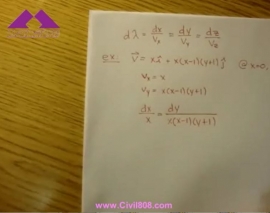 dλ = dx/Vx = dy/Vy = dz/Vz
ex: V⃗ = xî + x(x-1)(y+1)ĵ @ x=0,
Vx = x
Vy = x(x-1)(y+1)
dx/x = dy/x(x-1)(y+1)
www.Civil808.com